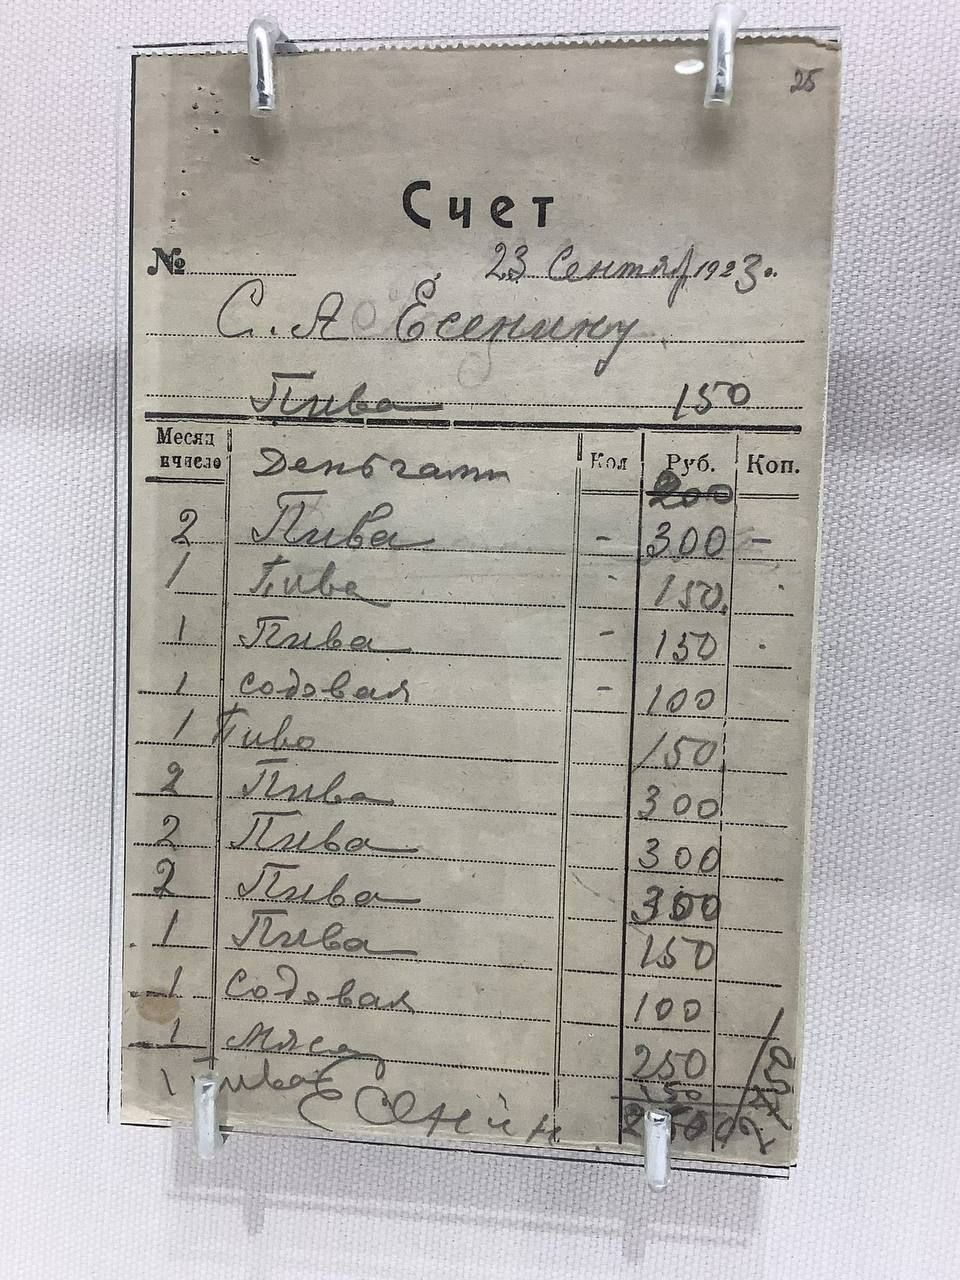 25
Счет
№ 23 Сентяб 1923г.
С. А Есенину
Пива 150
Месяц и число Кол Руб. Коп.
Деньгами 200
2 Пива - 300 -
1 Пива - 150
1 Пива - 150
1 содовая - 100
1 Пиво 150
2 Пива 300
2 Пива 300
2 Пива 300
1 Пива 150
1 Содовая 100
1 Мясо 250
1 Пиво 150
Есенин